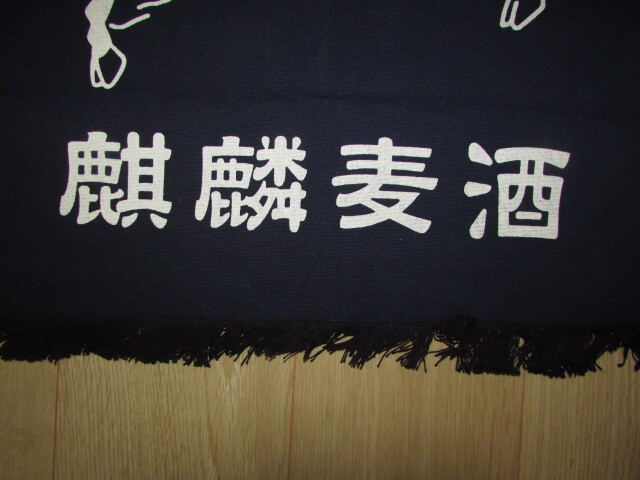 麒麟麦酒